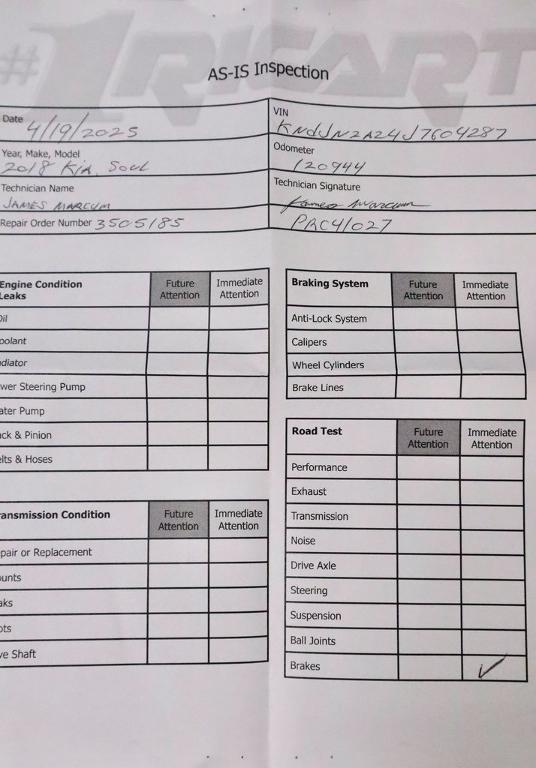 #1RICART
AS-IS Inspection
Date 4/19/2025
VIN KNDJN2A24J7604287
Year, Make, Model 2018 Kia, Soul
Odometer 120944
Technician Name JAMES MARCUM
Technician Signature James Marcum
Repair Order Number 3505185
PRC41027
Engine Condition Future Immediate
Leaks Attention Attention
Oil
oolant
diator
wer Steering Pump
ater Pump
ck & Pinion
elts & Hoses
ansmission Condition Future Immediate
Attention Attention
pair or Replacement
unts
aks
ots
ve Shaft
Braking System Future Immediate
Attention Attention
Anti-Lock System
Calipers
Wheel Cylinders
Brake Lines
Road Test Future Immediate
Attention Attention
Performance
Exhaust
Transmission
Noise
Drive Axle
Steering
Suspension
Ball Joints
Brakes ✓